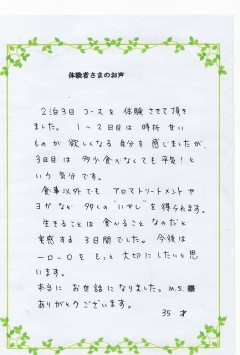 体験者さまのお声
2泊3日 コースを 体験 させて頂き
ました。 1〜2日目は 時折 甘い
ものが 欲しくなる 自分を 感じましたが、
3日目は 多少食べなくても平気！と
いう 気分 です。
食事以外でも アロマトリートメントや
ヨガなど 多くの "いやし" を得られます。
生きることは 食べること なのだと
実感する 3日間でした。 今後は
一口一口を もっと 大切にしたいと思
います。
本当に お世話になりました。 M.S. 様
ありがとうございます。
35 才